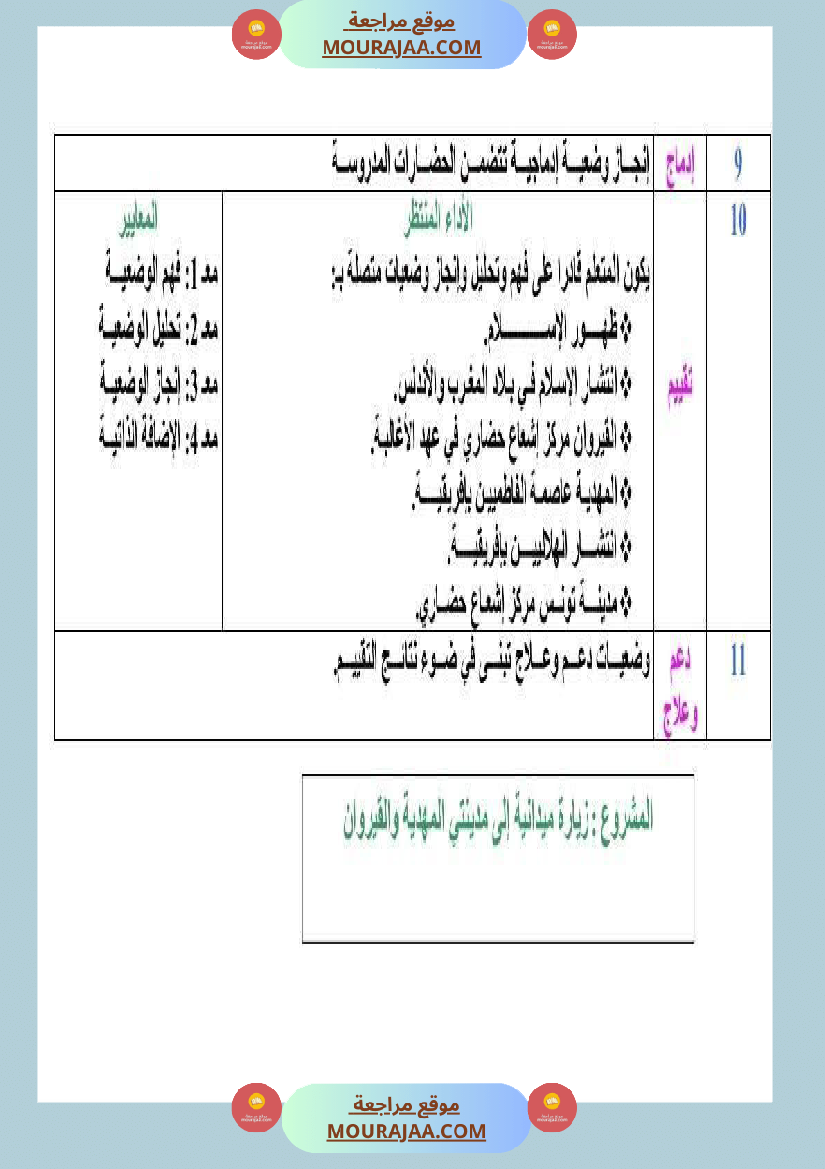 موقع مراجعة
MOURAJAA.COM
9
إدماج
إنجـاز وضعيـة إدماجيـة تتضمـن الحضـارات المدروسـة
10
تقييم
الأداء المنتظر
يكون المتعلم قادرا على فهم وتحليل وإنجاز وضعيات متصلة بـ:
❖ ظهـور الإسـلام.
❖ انتشـار الإسلام فـي بـلاد المغرب والأندلس.
❖ القيروان مركز إشعاع حضاري في عهد الأغالبة.
❖ المهديـة عاصمـة الفاطميين بإفريقيـة.
❖ انتشـار الهلالييـن بإفريقيـة.
❖ مدينـة تونـس مركز إشعـاع حضـاري.
المعايير
معـ 1: فهم الوضعيـة
معـ 2: تحليل الوضعيـة
معـ 3: إنجاز الوضعيـة
معـ 4: الإضافة الذاتيـة
11
دعم
وعلاج
وضعيـات دعـم وعـلاج تبنـى في ضـوء نتائـج التقييـم.
المشروع : زيارة ميدانية إلى مدينتي المهدية والقيروان
موقع مراجعة
MOURAJAA.COM